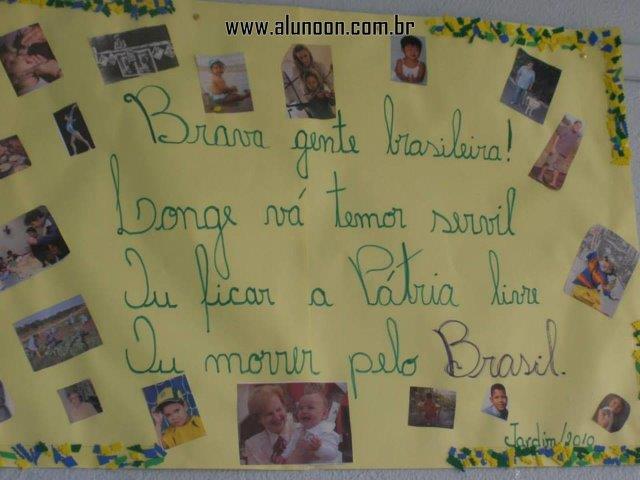 www.alunoon.com.br
Brava gente brasileira!
Longe vá temor servil
Ou ficar a Pátria livre
Ou morrer pelo Brasil.
Jardim/2010